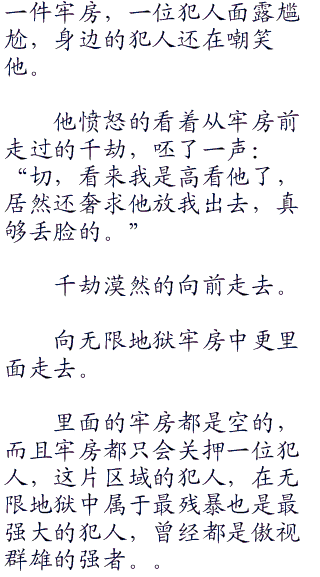 一件牢房，一位犯人面露尴
尬，身边的犯人还在嘲笑
他。
他愤怒的看着从牢房前
走过的千劫，呸了一声：
“切，看来我是高看他了，
居然还奢求他放我出去，真
够丢脸的。”
千劫漠然的向前走去。
向无限地狱牢房中更里
面走去。
里面的牢房都是空的，
而且牢房都只会关押一位犯
人，这片区域的犯人，在无
限地狱中属于最残暴也是最
强大的犯人，曾经都是傲视
群雄的强者。。